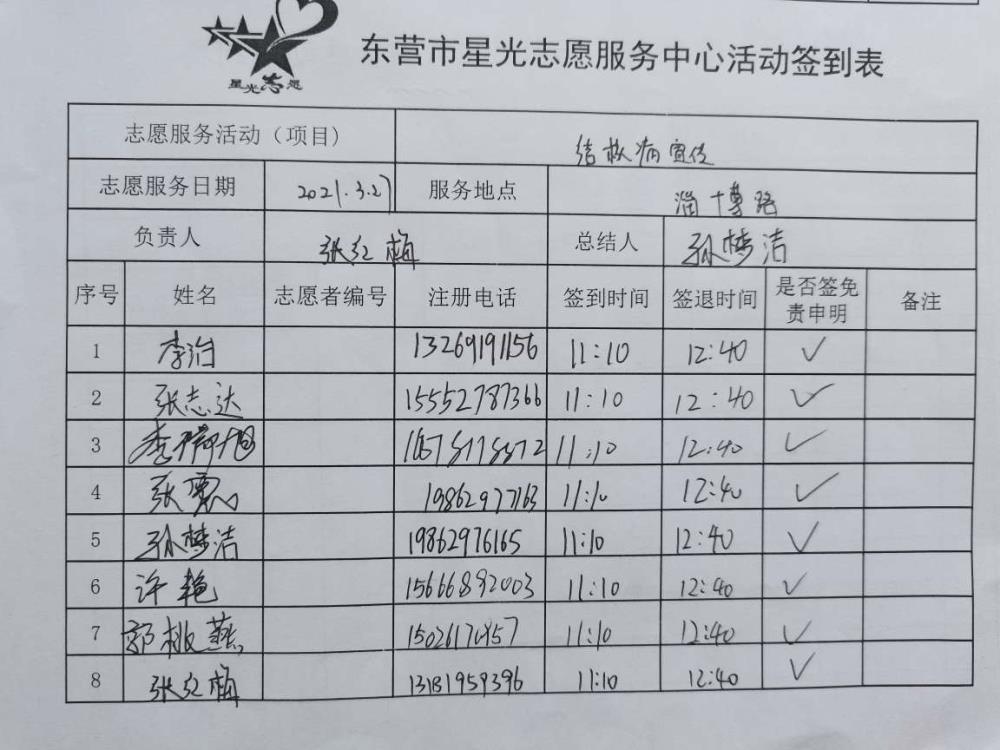 星光志愿
东营市星光志愿服务中心活动签到表
志愿服务活动（项目） 结核病宣传
志愿服务日期 2021.3.27 服务地点 淄博路
负责人 张红梅 总结人 孙梦洁
序号 姓名 志愿者编号 注册电话 签到时间 签退时间 是否签免责申明 备注
1 李治 13269191156 11:10 12:40 ✓
2 张志达 15552787366 11:10 12:40 ✓
3 11:10 12:40 ✓
4 张 19862977163 11:10 12:40 ✓
5 孙梦洁 19862976165 11:10 12:40 ✓
6 许艳 15666892003 11:10 12:40 ✓
7 郭桃燕 11:10 12:40 ✓
8 张红梅 13181959396 11:10 12:40 ✓